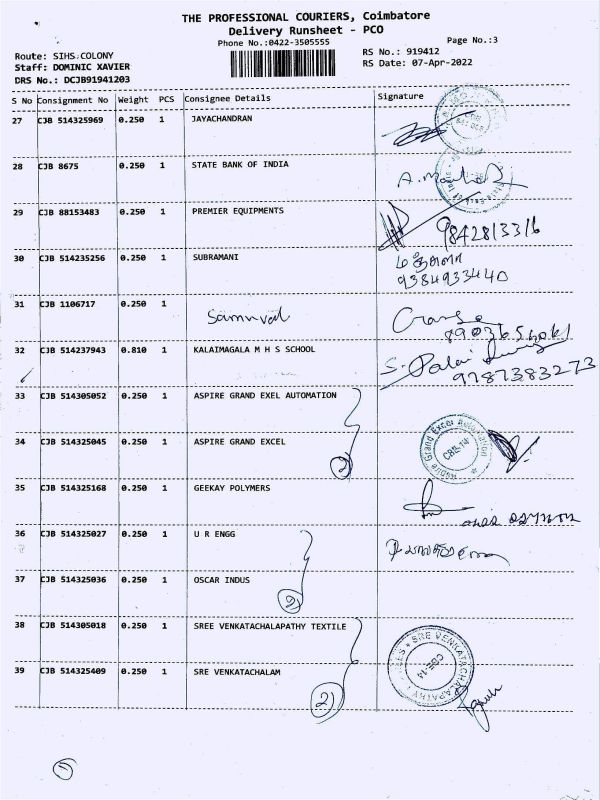 THE PROFESSIONAL COURIERS, Coimbatore
Delivery Runsheet - PCO
Phone No.:0422-3505555
Page No.:3
Route: SIHS COLONY
RS No.: 919412
Staff: DOMINIC XAVIER
RS Date: 07-Apr-2022
DRS No.: DCJB91941203
S No Consignment No Weight PCS Consignee Details Signature
27 CJB 514325969 0.250 1 JAYACHANDRAN
28 CJB 8675 0.250 1 STATE BANK OF INDIA
29 CJB 88153483 0.250 1 PREMIER EQUIPMENTS
9842813316
30 CJB 514235256 0.250 1 SUBRAMANI
9384933440
31 CJB 1106717 0.250 1
32 CJB 514237943 0.810 1 KALAIMAGALA M H S SCHOOL
9787383273
33 CJB 514305052 0.250 1 ASPIRE GRAND EXEL AUTOMATION
34 CJB 514325045 0.250 1 ASPIRE GRAND EXCEL
2
Grand Excel Automation
CBE-14
35 CJB 514325168 0.250 1 GEEKAY POLYMERS
36 CJB 514325027 0.250 1 U R ENGG
37 CJB 514325036 0.250 1 OSCAR INDUS
2
38 CJB 514305018 0.250 1 SREE VENKATACHALAPATHY TEXTILE
39 CJB 514325409 0.250 1 SRE VENKATACHALAM
2
SRE VENKATACHALAPATHY
CBE-14